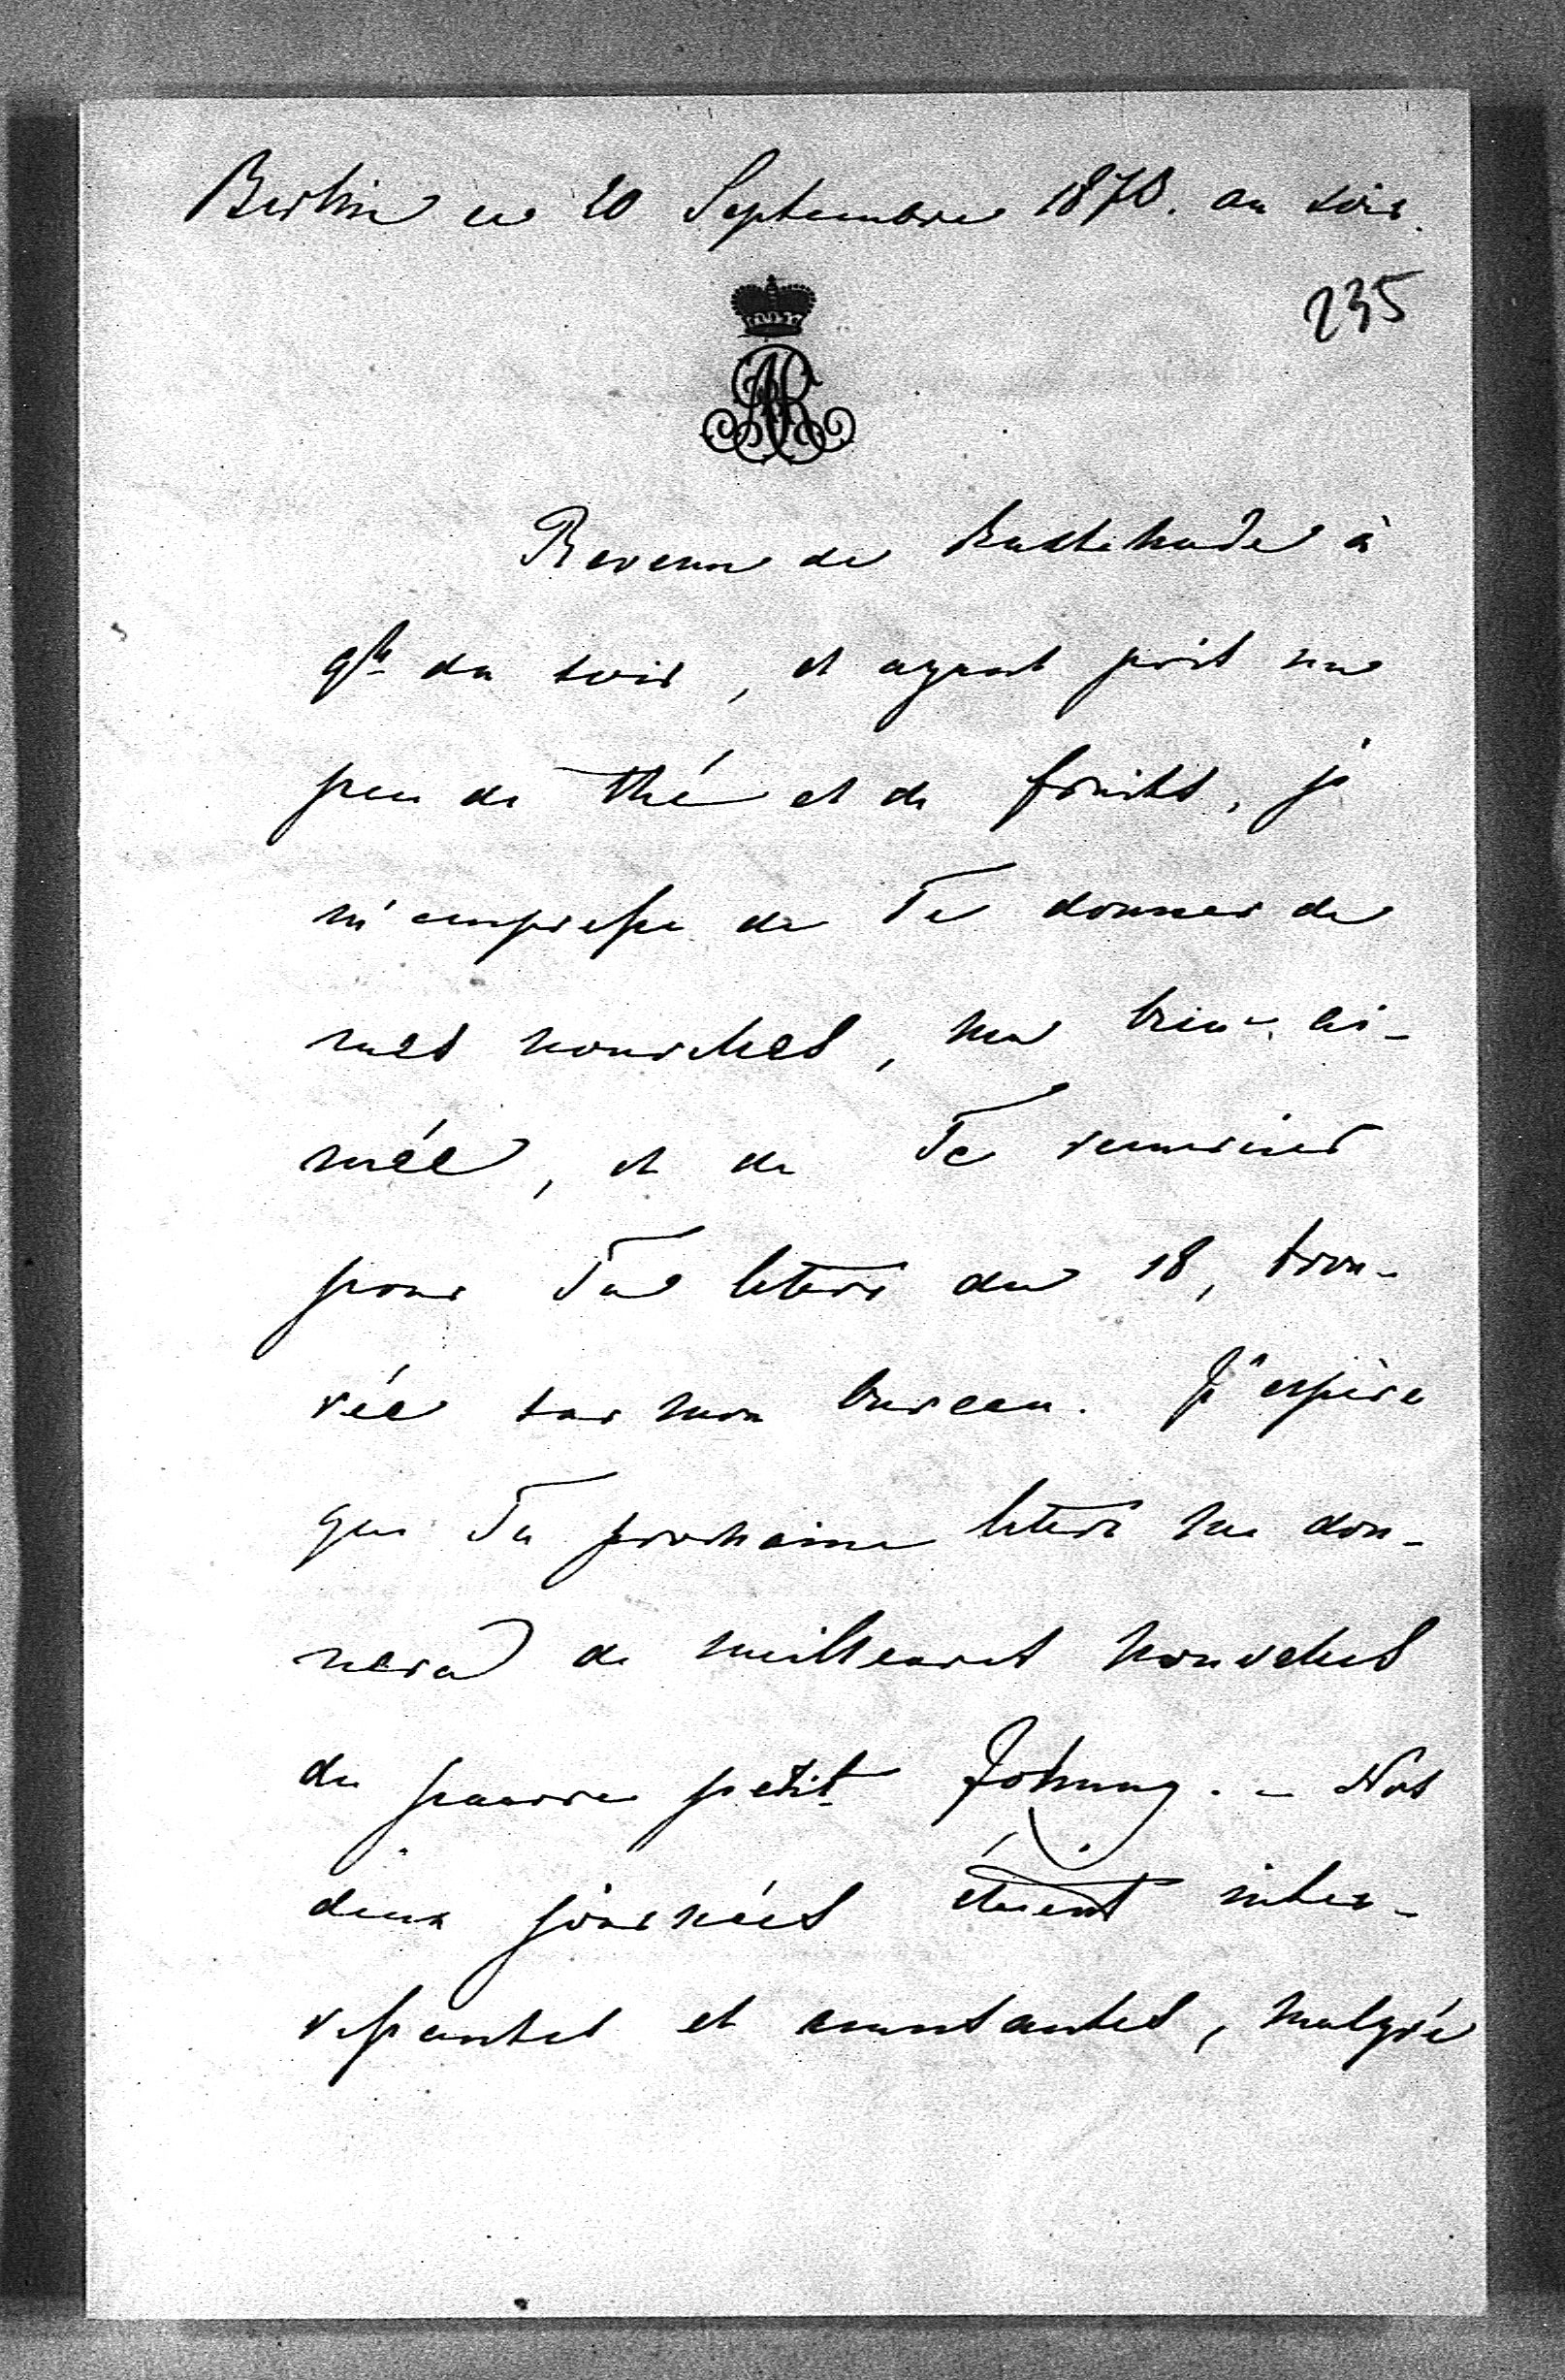 Berlin ce 20 Septembre 1878. au soir.
235
AR
Revenu de à
9h du soir, et ayant prit un
peu de thé et de fruits, je
m'empresse de Te donner de
mes nouvelles, ma bien-ai-
mée, et de Te remercier
pour Ta lettre du 18, trou-
vée sur mon bureau. J'espère
que Ta prochaine lettre me don-
nera de meilleures nouvelles
du pauvre petit Johnny. - Nos
deux journées étaient inter-
ressantes et amusantes, malgré